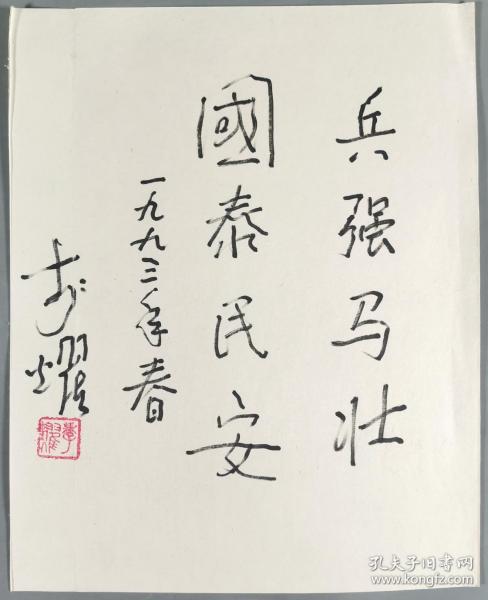 兵强马壮
國泰民安
一九九三年春
李耀
李耀
孔夫子旧书网
www.kongfz.com